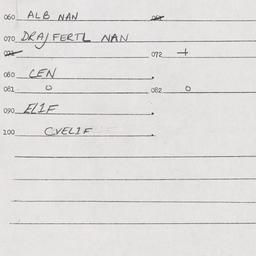 060 ALB NAN
070 DRA/FERTL NAN
072 +
080 LEN
081 0 082 0
090 ELIF
100 CVELIF